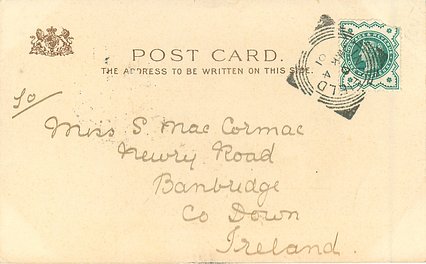 POST CARD.
THE ADDRESS TO BE WRITTEN ON THIS SIDE.
To
Miss S Mac Cormac
Newry Road
Banbridge
Co Down
Ireland.